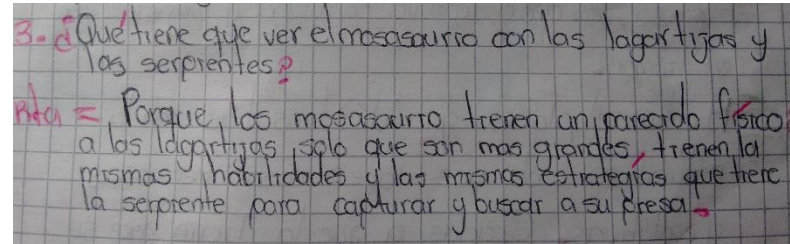 3. ¿Qué tiene que ver el mosasaurio con las lagartijas y
las serpientes?
Rta = Porque los mosasaurio tienen un parecido físico
a las lagartijas solo que son mas grandes, tienen la
mismas habilidades y las mismas estrategias que tiene
la serpiente para capturar y buscar a su presa.